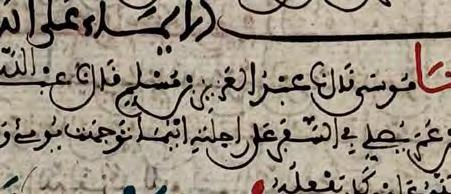 الايماء على الد
نا موسى قال نا عبد العزيز بن مسلم قال نا عبد الله
بن عمر يصلي في السفر على راحلته اينما توجهت يومئ و
كان يفعله